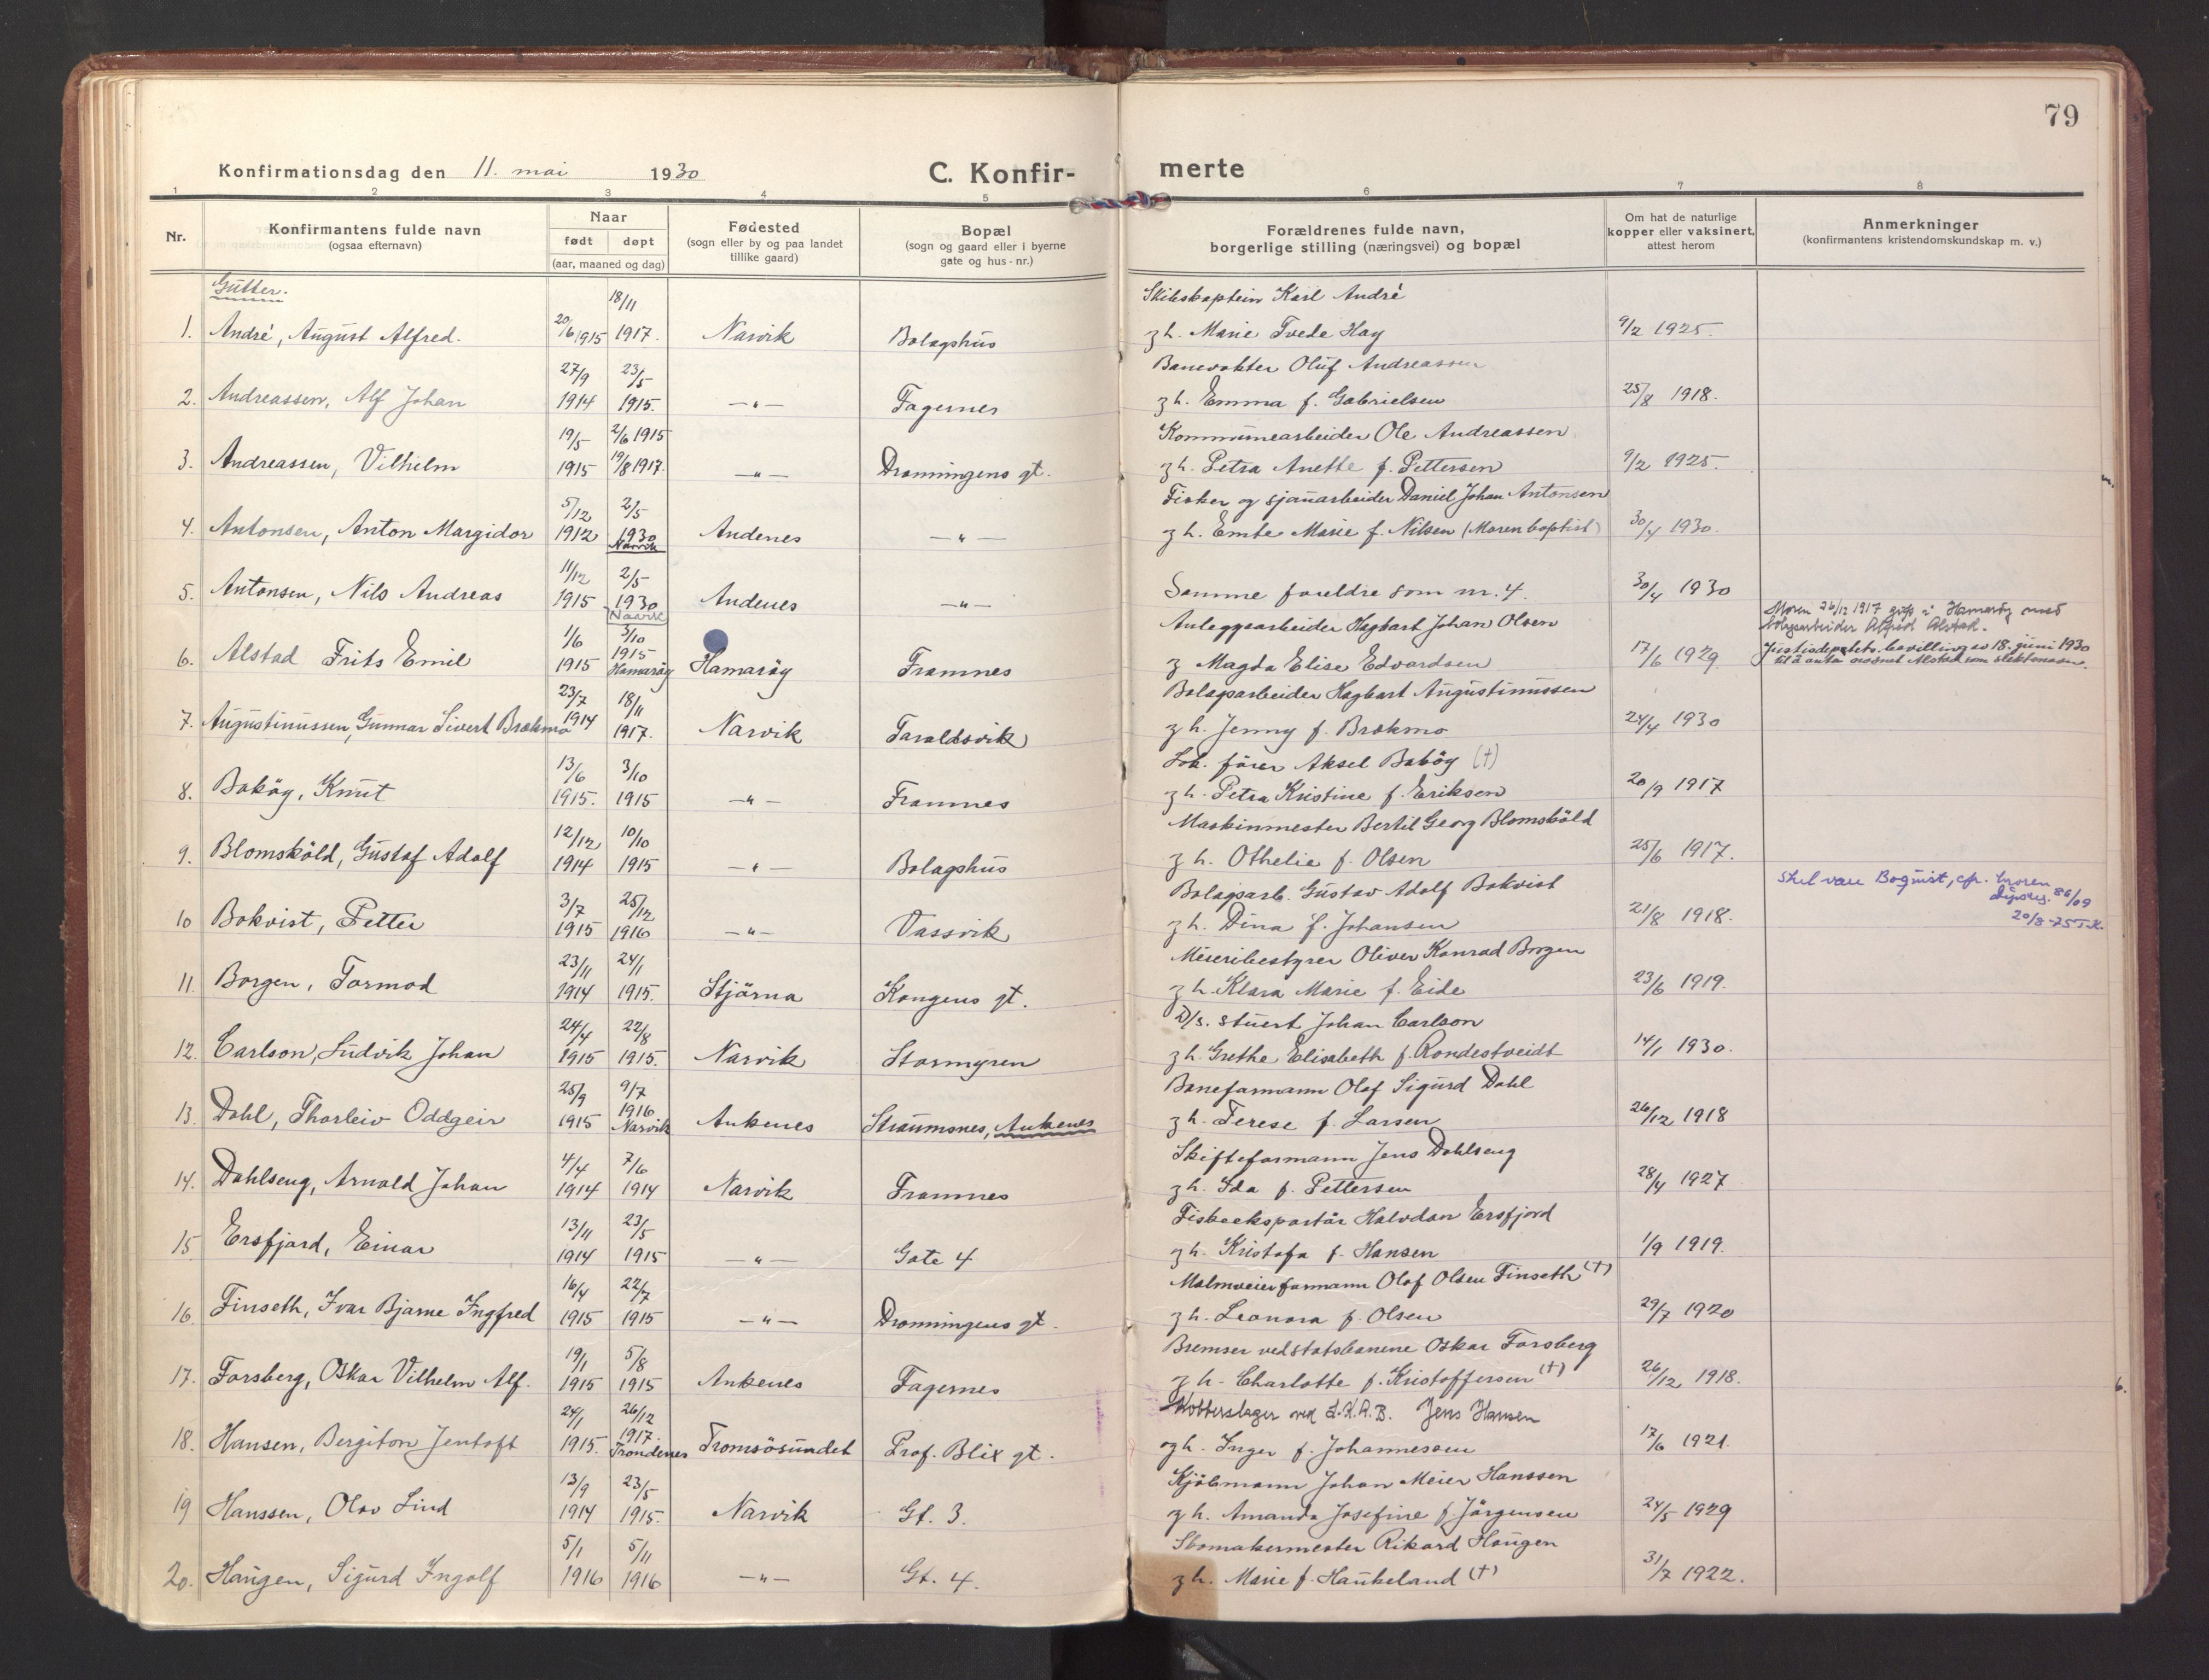 79
Konfirmationsdag den 11. mai 1930
C. Konfir-
merte
1 2 3 4 5 6 7 8
Nr.
Konfirmantens fulde navn
(ogsaa efternavn)
Naar
født døpt
(aar, maaned og dag)
Fødested
(sogn eller by og paa landet
tillike gaard)
Bopæl
(sogn og gaard eller i byerne
gate og hus-nr.)
Forældrenes fulde navn,
borgerlige stilling (næringsvei) og bopæl
Om hat de naturlige
kopper eller vaksinert,
attest herom
Anmerkninger
(konfirmantens kristendomskundskap m. v.)
Gutter.
18/11 Skibskaptein Karl André
1. André, August Alfred. 20/6 1915 1917. Narvik Bolagshus g h. Marie Tvede Hay 9/2 1925.
27/9 23/5 Banevokter Oluf Andreassen
2. Andreassen, Alf Johan 1914 1915. —"— Fagernes g h. Emma f. Gabrielsen 25/8 1918.
19/5 2/6 1915 Kommunearbeider Ole Andreassen
3. Andreassen, Vilhelm 1915 19/8 1917. —"— Dronningens gt. g h. Petra Anette f. Pettersen 9/2 1925.
5/12 2/5 Fisker og sjauarbeider Daniel Johan Antonsen
4. Antonsen, Anton Margidor 1912 1930 Narvik Andenes —"— g h. Emte Marie f. Nilsen (Moren baptist) 30/4 1930.
11/12 2/5
5. Antonsen, Nils Andreas 1915 1930 Narvik Andenes —"— Samme foreldre som nr. 4. 30/4 1930
1/6 3/10 Anleggsarbeider Hagbart Johan Olsen Moren 26/12 1917 gift i Hamarøy med
bolagsarbeider Alfred Alstad.
6. Alstad Frits Emil 1915 1915 Hamarøy Hamarøy Framnes g Magda Elise Edvardsen 17/6 1929 Justisdepartets. bevilling av 18. juni 1930
til å anta navnet Alstad som slektsnavn.
23/7 18/11 Bolagsarbeider Hagbart Augustinussen
7. Augustinussen, Gunnar Sivert Brækmo 1914 1917. Narvik Taraldsvik g h. Jenny f. Brækmo 24/4 1930
13/6 3/10 Lok. fører Aksel Bakøy (†)
8. Bakøy, Knut 1915. 1915 —"— Framnes g h. Petra Kristine f. Eriksen 20/9 1917
12/12 10/10 Maskinmester Bertil Georg Blomsköld
9. Blomsköld, Gustaf Adolf 1914 1915 —"— Bolagshus g h. Othelie f. Olsen 25/6 1917.
3/7 25/12 Bolagsarb. Gustav Adolf Bokvist Skal være Boquist, cfr. moren
86/09
10 Bokvist, Petter 1915 1916 —"— Vassvik g h. Dina f. Johansen 21/8 1918. 20/8-75 T.K.
23/11 24/1 Meieribestyrer Oliver Konrad Borgen
11. Borgen, Tormod 1914 1915. Stjørna Kongens gt. g h. Klara Marie f. Eide 23/6 1919.
24/4 22/8 D/s. stuert Johan Carlson
12. Carlson, Ludvik Johan 1915 1915. Narvik Stormyren g h. Grethe Elisabeth f. Rondestveidt 14/1 1930.
25/9 9/7 Baneformann Olaf Sigurd Dahl
13. Dahl, Thorleiv Oddgeir 1915 1916 Narvik Ankenes Straumsnes, Ankenes g h. Terese f. Larsen 26/12 1918
4/4 7/6 Skifteformann Jens Dahlseng
14. Dahlseng, Arnold Johan 1914 1914 Narvik Framnes g h. Ida f. Pettersen 28/4 1927
13/11 23/5 Fiskeeksportør Halvdan Ersfjord
15 Ersfjord, Einar 1914 1915 —"— Gate 4 g h. Kristofa f. Hansen 1/9 1919.
16/4 22/7 Malmveierformann Olaf Olsen Finseth (†)
16. Finseth, Ivar Bjarne Ingfred 1915 1915 —"— Dronningens gt. g h. Leonora f. Olsen 29/7 1920
19/1 5/8 Bremser ved statsbanene Oskar Forsberg
17. Forsberg, Oskar Vilhelm Alf. 1915 1915 Ankenes Fagernes g h. Charlotte f. Kristoffersen (†) 26/12 1918.
24/1 26/12 Kobberslager ved L.K.A.B. Jens Hansen
18. Hansen, Bergiton Jentoft 1915. 1917. Trondenes Tromsøsundet Prof. Blix gt. og h. Inger f. Johannessen 17/6 1921.
13/9 23/5 Kjøbmann Johan Meier Hanssen
19 Hanssen, Olav Lind 1914 1915. Narvik Gt. 3. g h. Amanda Josefine f. Jørgensen 24/5 1929
5/1 5/11 Skomakermester Rikard Haugen
20. Haugen, Sigurd Ingolf 1916 1916 —"— Gt. 4. g h. Marie f. Haukeland (†) 31/7 1922.